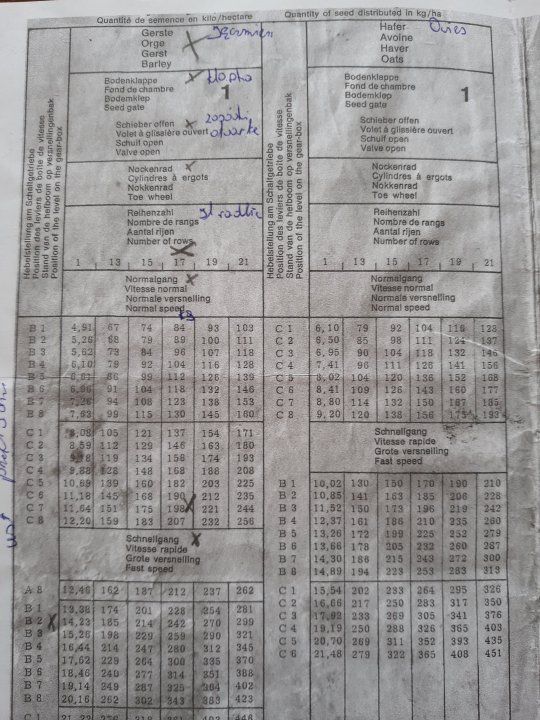 Quantité de semence en kilo/hectare
Quantity of seed distributed in kg/ha
Gerste
Orge
Gerst
Barley
Hafer
Avoine
Haver
Oats
Bodenklappe
Fond de chambre
Bodemklep
Seed gate
1
Bodenklappe
Fond de chambre
Bodemklep
Seed gate
1
Schieber offen
Volet à glissière ouvert
Schuif open
Valve open
Schieber offen
Volet à glissière ouvert
Schuif open
Valve open
Nockenrad
Cylindres à ergots
Nokkenrad
Toe wheel
Nockenrad
Cylindres à ergots
Nokkenrad
Toe wheel
Hebelstellung am Schaltgetriebe
Position des leviers de boîte de vitesse
Stand van de hefboom op versnellingenbak
Position of the level on the gear-box
Hebelstellung am Schaltgetriebe
Position des leviers de boîte de vitesse
Stand van de hefboom op versnellingenbak
Position of the level on the gear-box
Reihenzahl
Nombre de rangs
Aantal rijen
Number of rows
Reihenzahl
Nombre de rangs
Aantal rijen
Number of rows
1 13 15 17 19 21
1 13 15 17 19 21
Normalgang
Vitesse normal
Normale versnelling
Normal speed
Normalgang
Vitesse normal
Normale versnelling
Normal speed
B 1 4,91 67 74 84 93 103
B 2 5,26 68 79 89 100 111
B 3 5,62 73 84 96 107 118
B 4 6,10 79 92 104 116 128
B 5 99 112 126 139
B 6 91 104 132 146
B 7 94 108 123 138 153
B 8 7,63 99 115 130 145 160
C 1 6,10 79 92 104 116 128
C 2 6,50 85 98 111 124 137
C 3 6,95 90 104 118 132 146
C 4 7,41 96 111 126 141 156
C 5 8,02 104 120 136 152 168
C 6 8,41 109 126 143 160 177
C 7 8,80 114 132 150 167 185
C 8 9,20 120 138 156 175 193
C 1 8,08 105 121 137 154 171
C 2 8,59 112 129 146 163 180
C 3 119 134 156 174 193
C 4 9,88 128 148 168 188 208
C 5 10,69 139 160 182 203 225
C 6 11,18 145 168 190 212 235
C 7 11,64 151 175 198 221 244
C 8 12,20 159 183 207 232 256
Schnellgang
Vitesse rapide
Grote versnelling
Fast speed
Schnellgang
Vitesse rapide
Grote versnelling
Fast speed
A 8 12,46 162 187 212 237 262
B 1 13,38 174 201 228 254 281
B 2 14,23 185 214 242 270 299
B 3 15,26 198 229 259 290 321
B 4 16,44 214 247 280 312 345
B 5 17,62 229 264 300 335 370
B 6 18,46 240 277 314 351 388
B 7 19,14 249 287 325 364 402
B 8 20,16 262 302 343 383 423
B 1 10,02 130 150 170 190 210
B 2 10,85 141 163 185 206 228
B 3 11,52 150 173 196 219 242
B 4 12,37 161 186 210 235 260
B 5 13,26 172 199 225 252 279
B 6 13,66 178 205 232 260 287
B 7 14,30 186 215 243 272 300
B 8 14,89 194 223 253 283 313
C 1 15,54 202 233 264 295 326
C 2 16,66 217 250 283 317 350
C 3 17,92 233 269 305 341 376
C 4 19,19 250 288 326 365 403
C 5 20,70 269 311 352 393 435
C 6 21,48 279 322 365 408 451